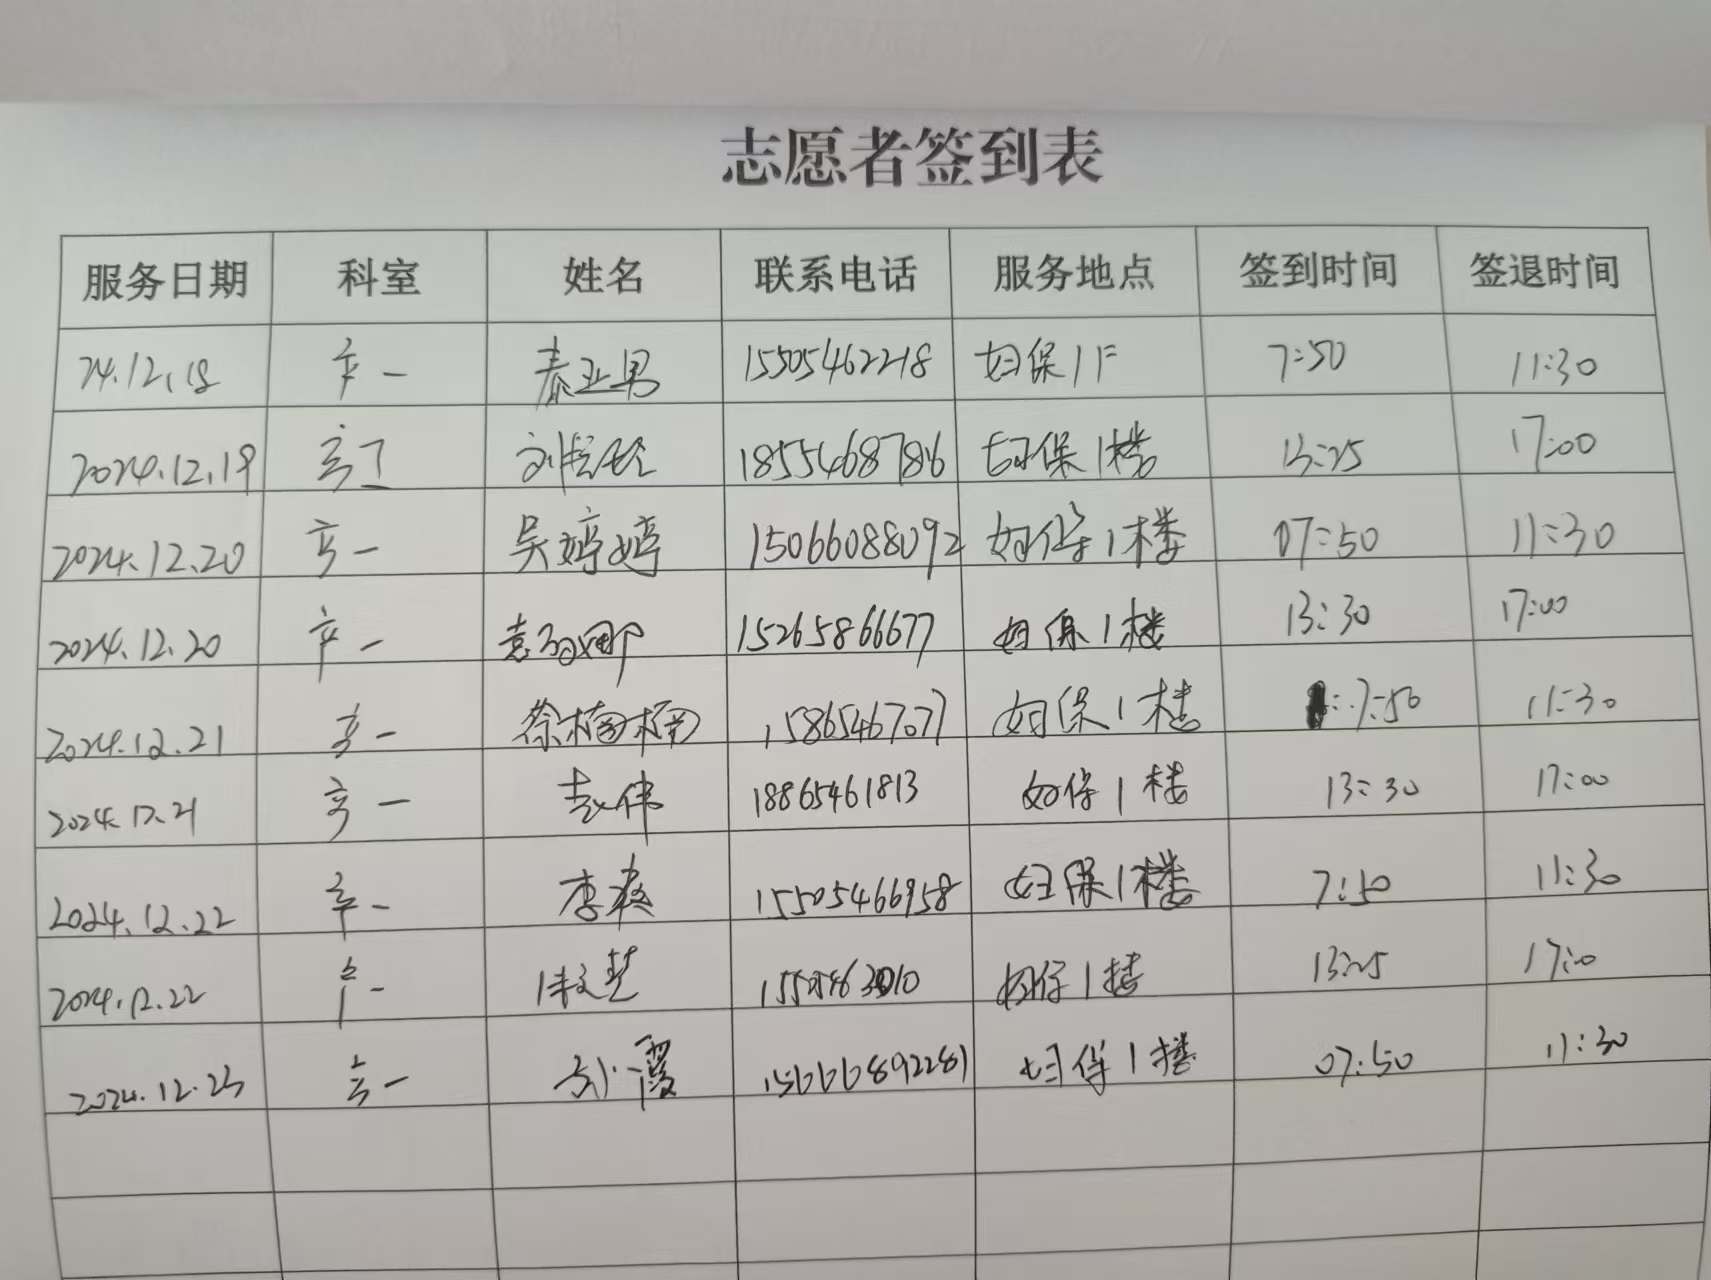 志愿者签到表
服务日期 科室 姓名 联系电话 服务地点 签到时间 签退时间
24.12.18 产一 秦亚男 15505462218 妇保1F 7:50 11:30
2024.12.19 1855468786 妇保1楼 13:25 17:00
2024.12.20 产一 吴婷婷 15066088092 妇保1楼 07:50 11:30
2024.12.20 产一 袁 娜 15265866677 妇保1楼 13:30 17:00
2024.12.21 产一 徐楠楠 15865467077 妇保1楼 7:50 11:30
2024.12.21 产一 赵伟 18865461813 妇保1楼 13:30 17:00
2024.12.22 产一 李 15505466958 妇保1楼 7:50 11:30
2024.12.22 产一 妇保1楼 13:25 17:00
2024.12.23 产一 孙霞 15666892281 妇保1楼 07:50 11:30